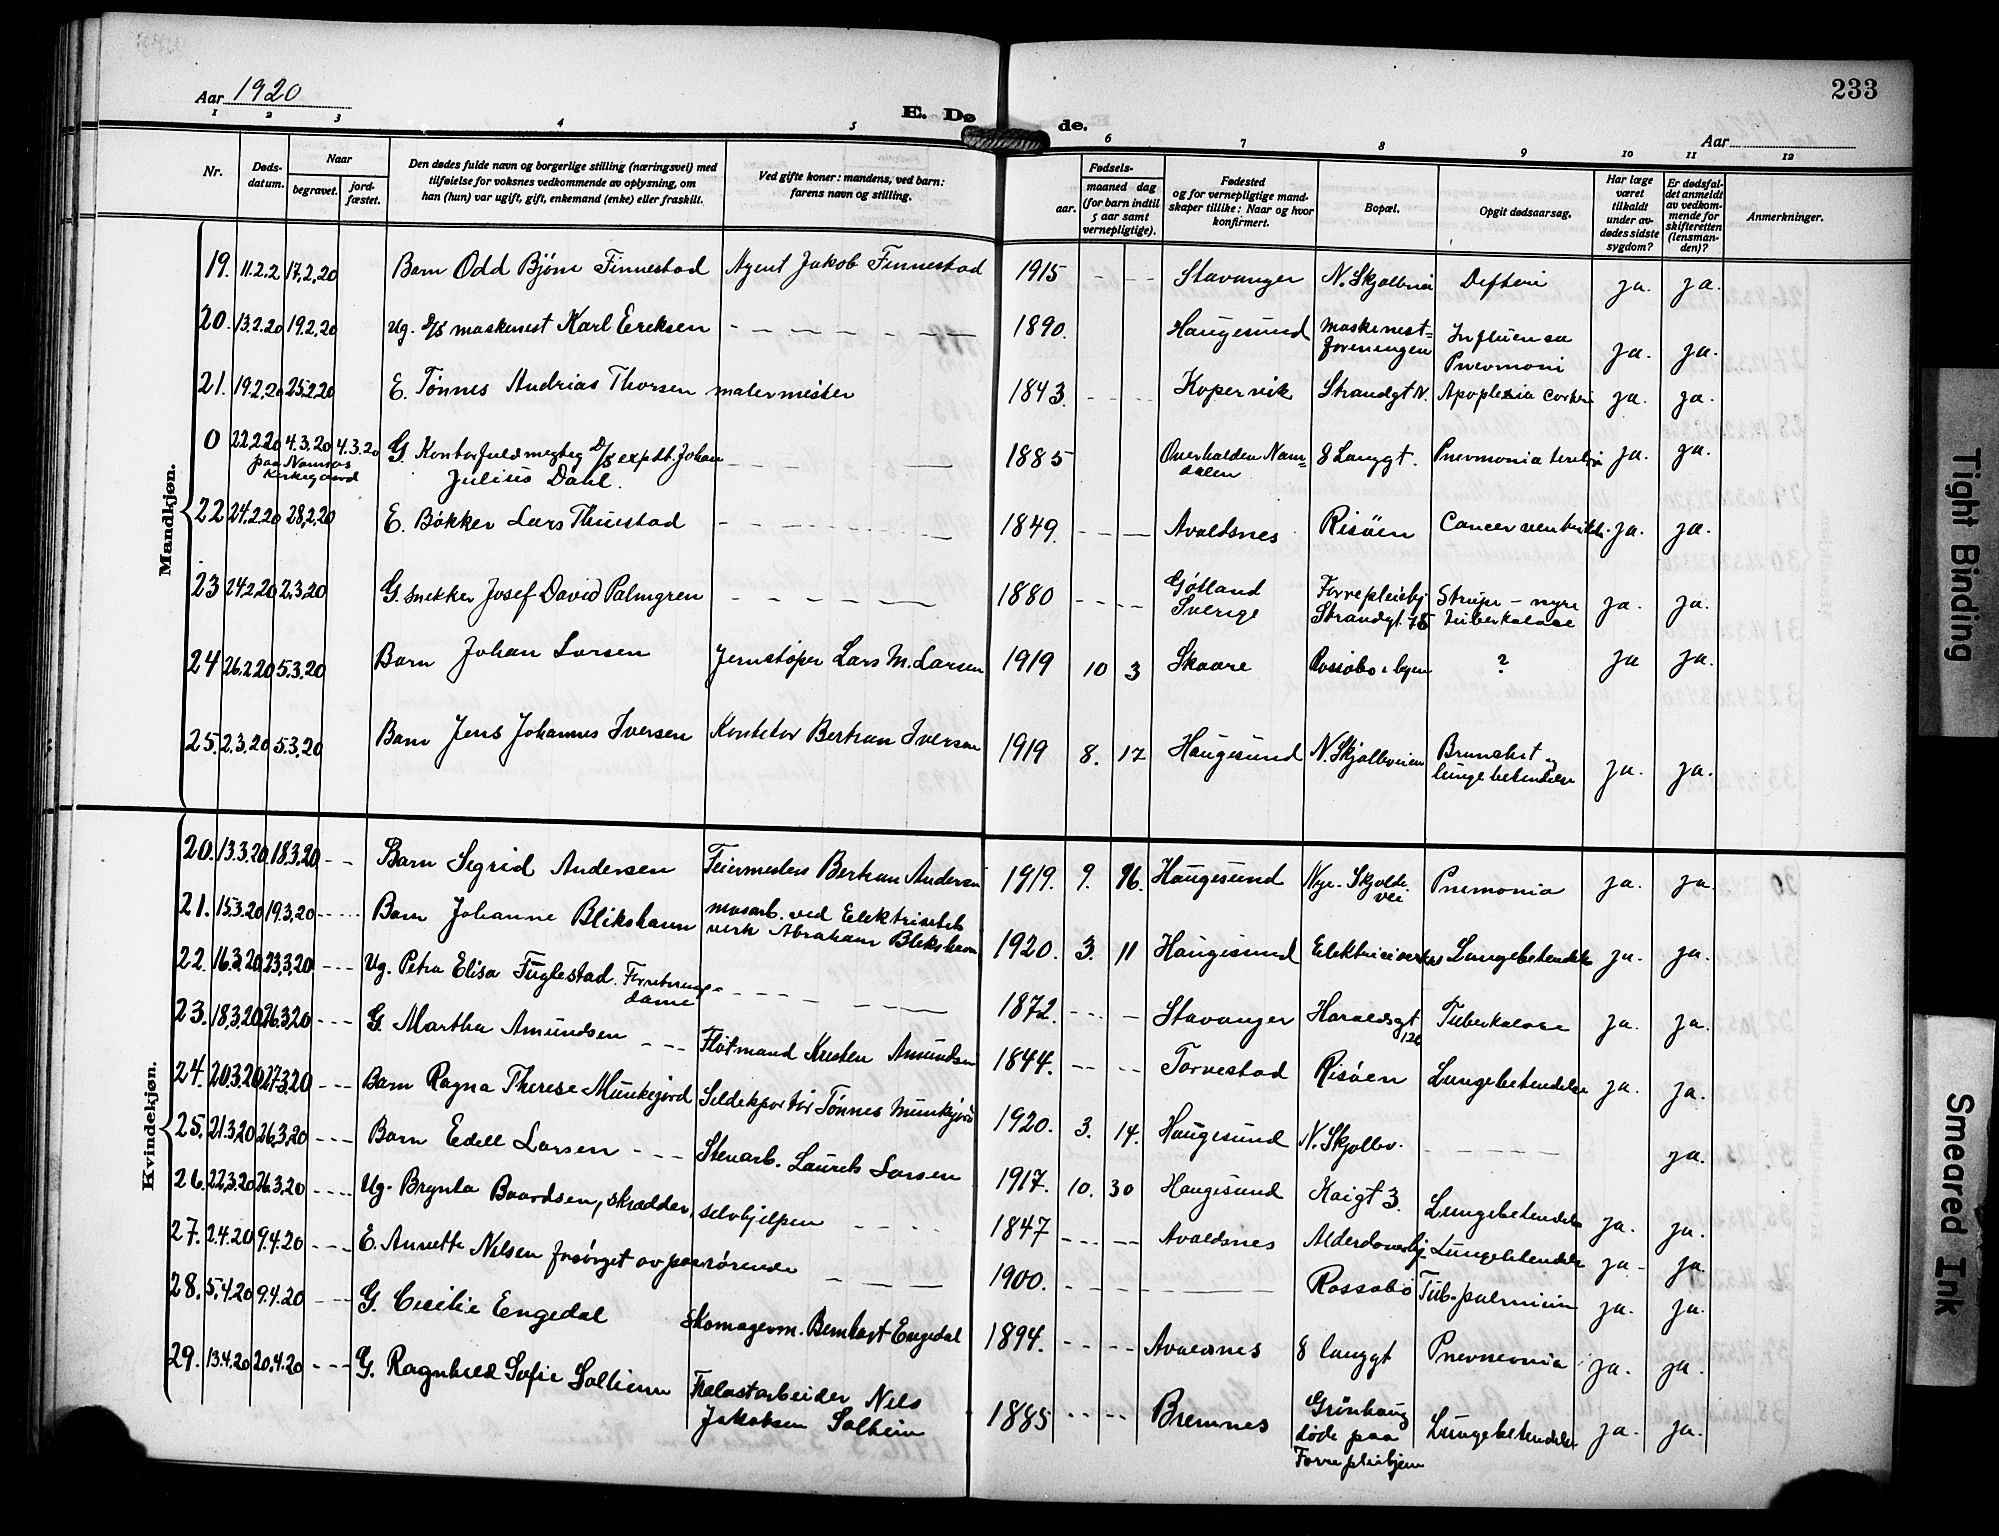 233
Aar 1920
E. Døde.
Aar
1 2 3 4 5 6 7 8 9 10 11 12
Nr.
Døds-datum.
Naar
begravet.
jord-fæstet.
Den dødes fulde navn og borgerlige stilling (næringsvei) med
tilføielse for voksnes vedkommende av oplysning, om
han (hun) var ugift, gift, enkemand (enke) eller fraskilt.
Ved gifte koner: mandens, ved barn:
farens navn og stilling.
Fødsels-
aar.
maaned dag
(for barn indtil
5 aar samt
vernepligtige).
Fødested
og for vernepligtige mand-
skaper tillike: Naar og hvor
konfirmert.
Bopæl.
Opgit dødsaarsag.
Har læge
været
tilkaldt
under av-
dødes sidste
sygdom?
Er dødsfal-
det anmeldt
av vedkom-
mende for
skifteretten
(lensman-
den)?
Anmerkninger.
Mandkjøn.
19. 11.2.2 17.2.20 Barn Odd Bjørn Finnestad Agent Jakob Finnestad 1915 - - - - Stavanger N. Skjoldvei Difteri ja. ja.
20. 13.2.20 19.2.20 Ug. D/S maskinest Karl Eriksen - - - - 1890. Haugesund Maskinest=
foreningen Influensa
Pnevmoni ja. ja.
21. 19.2.20 25.2.20 E. Tønnes Andrias Thorsen malermester 1843. - - - - Kopervik Strandgt N. Apoplexia ja. ja.
0 22.2.20 4.3.20 4.3.20 G. Kontorfuldmegtig D/S expdt. Johan
paa Namsos
Kirkegaard Julius Dahl. - - - - 1885 Overhalden Nam=
dalen 8 Langgt. Pnevmonia ja. ja.
22 24.2.20 28.2.20 E. Bøkker Lars Thuestad - - - - 1849. - - - Avaldsnes Risøen Cancer ventrikli. ja. ja.
23 24.2.20 2.3.20 G. Snekker Josef David Palmgren - - - - 1880 - - - - Gotland
Sverige Forrepleiehj.
Strandgt. 78 Strupe - nyre
tuberkulose ja. ja.
24 26.2.20 5.3.20 Barn Johan Larsen Jernstøper Lars M. Larsen 1919 10 3 Skaare Rossabø i byen ? ja ja.
25. 2.3.20 5.3.20 Barn Jens Johannes Iversen Kontorist Bertran Iversen 1919 8. 12 Haugesund N. Skjoldveien Brunchit og
lungebetendelse ja. ja.
Kvindekjøn.
20. 13.3.20 18.3.20 - - Barn Sigrid Andersen Feiermesters Bertran Andersen 1919. 9. 26. Haugesund Nye. Skjolde.
vei Pnemonia ja. ja
21. 15.3.20 19.3.20 - - - Barn Johanne Blikshavn ved Elektrisitets
verk Abraham Blikshavn 1920. 3. 11 Haugesund Elektricitverket Lungebetendelse ja. ja.
22. 16.3.20 23.3.20 - - - Ug. Petra Elisa Fuglestad. Forretnings=
dame - - - - 1872. - - - - Stavanger Haraldsgt
120 Tuberkulose ja. ja.
23. 18.3.20 26.3.20 - - - G. Martha Amundsen - - - Fløtmand Kristen Amundsen 1844. - - - - Torvestad Risøen Lungebetendelse ja. ja.
24. 20.3.20 27.3.20 - - - Barn Ragna Therese Munkejord Sildekportør Tønnes Munkejord 1920. 3. 14. Haugesund N. Skjoldv. - - - - - ja.
25. 21.3.20 26.3.20 - - - Barn Edell Larsen - - - Stenarb. Laurits Larsen 1917. 10. 30 Haugesund Kaigt 3. Lungebetendelse ja. ja.
26. 22.3.20 26.3.20 - - - - Ug. Brynla Baardsen, skrædder, selvhjelpen - - - - 1847 - - - - - Avaldsnes Alderdomshj. Lungebetendelse ja - ja.
27. 2.4.20 9.4.20 - - - E. Annette Nilsen forsørget av paarørende - - - - 1900. - - - - Rossabø Tub. pulmium ja. ja.
28. 5.4.20 9.4.20 - - - G. Cecilie Engedal Skomagerm. Bernhart Engedal 1894. - - - - Avaldsnes 8 langgt Pnevmonia ja. ja.
29. 13.4.20 20.4.20 - - - G. Ragnhild Sofie Solheim Ballastarbeider Nils
Jakobsen Solheim 1885 - - - - Bremnes Grønhaug
døde paa
Forrepleiehjem Lungebetendelse ja. ja.
Tight Binding
Smeared Ink